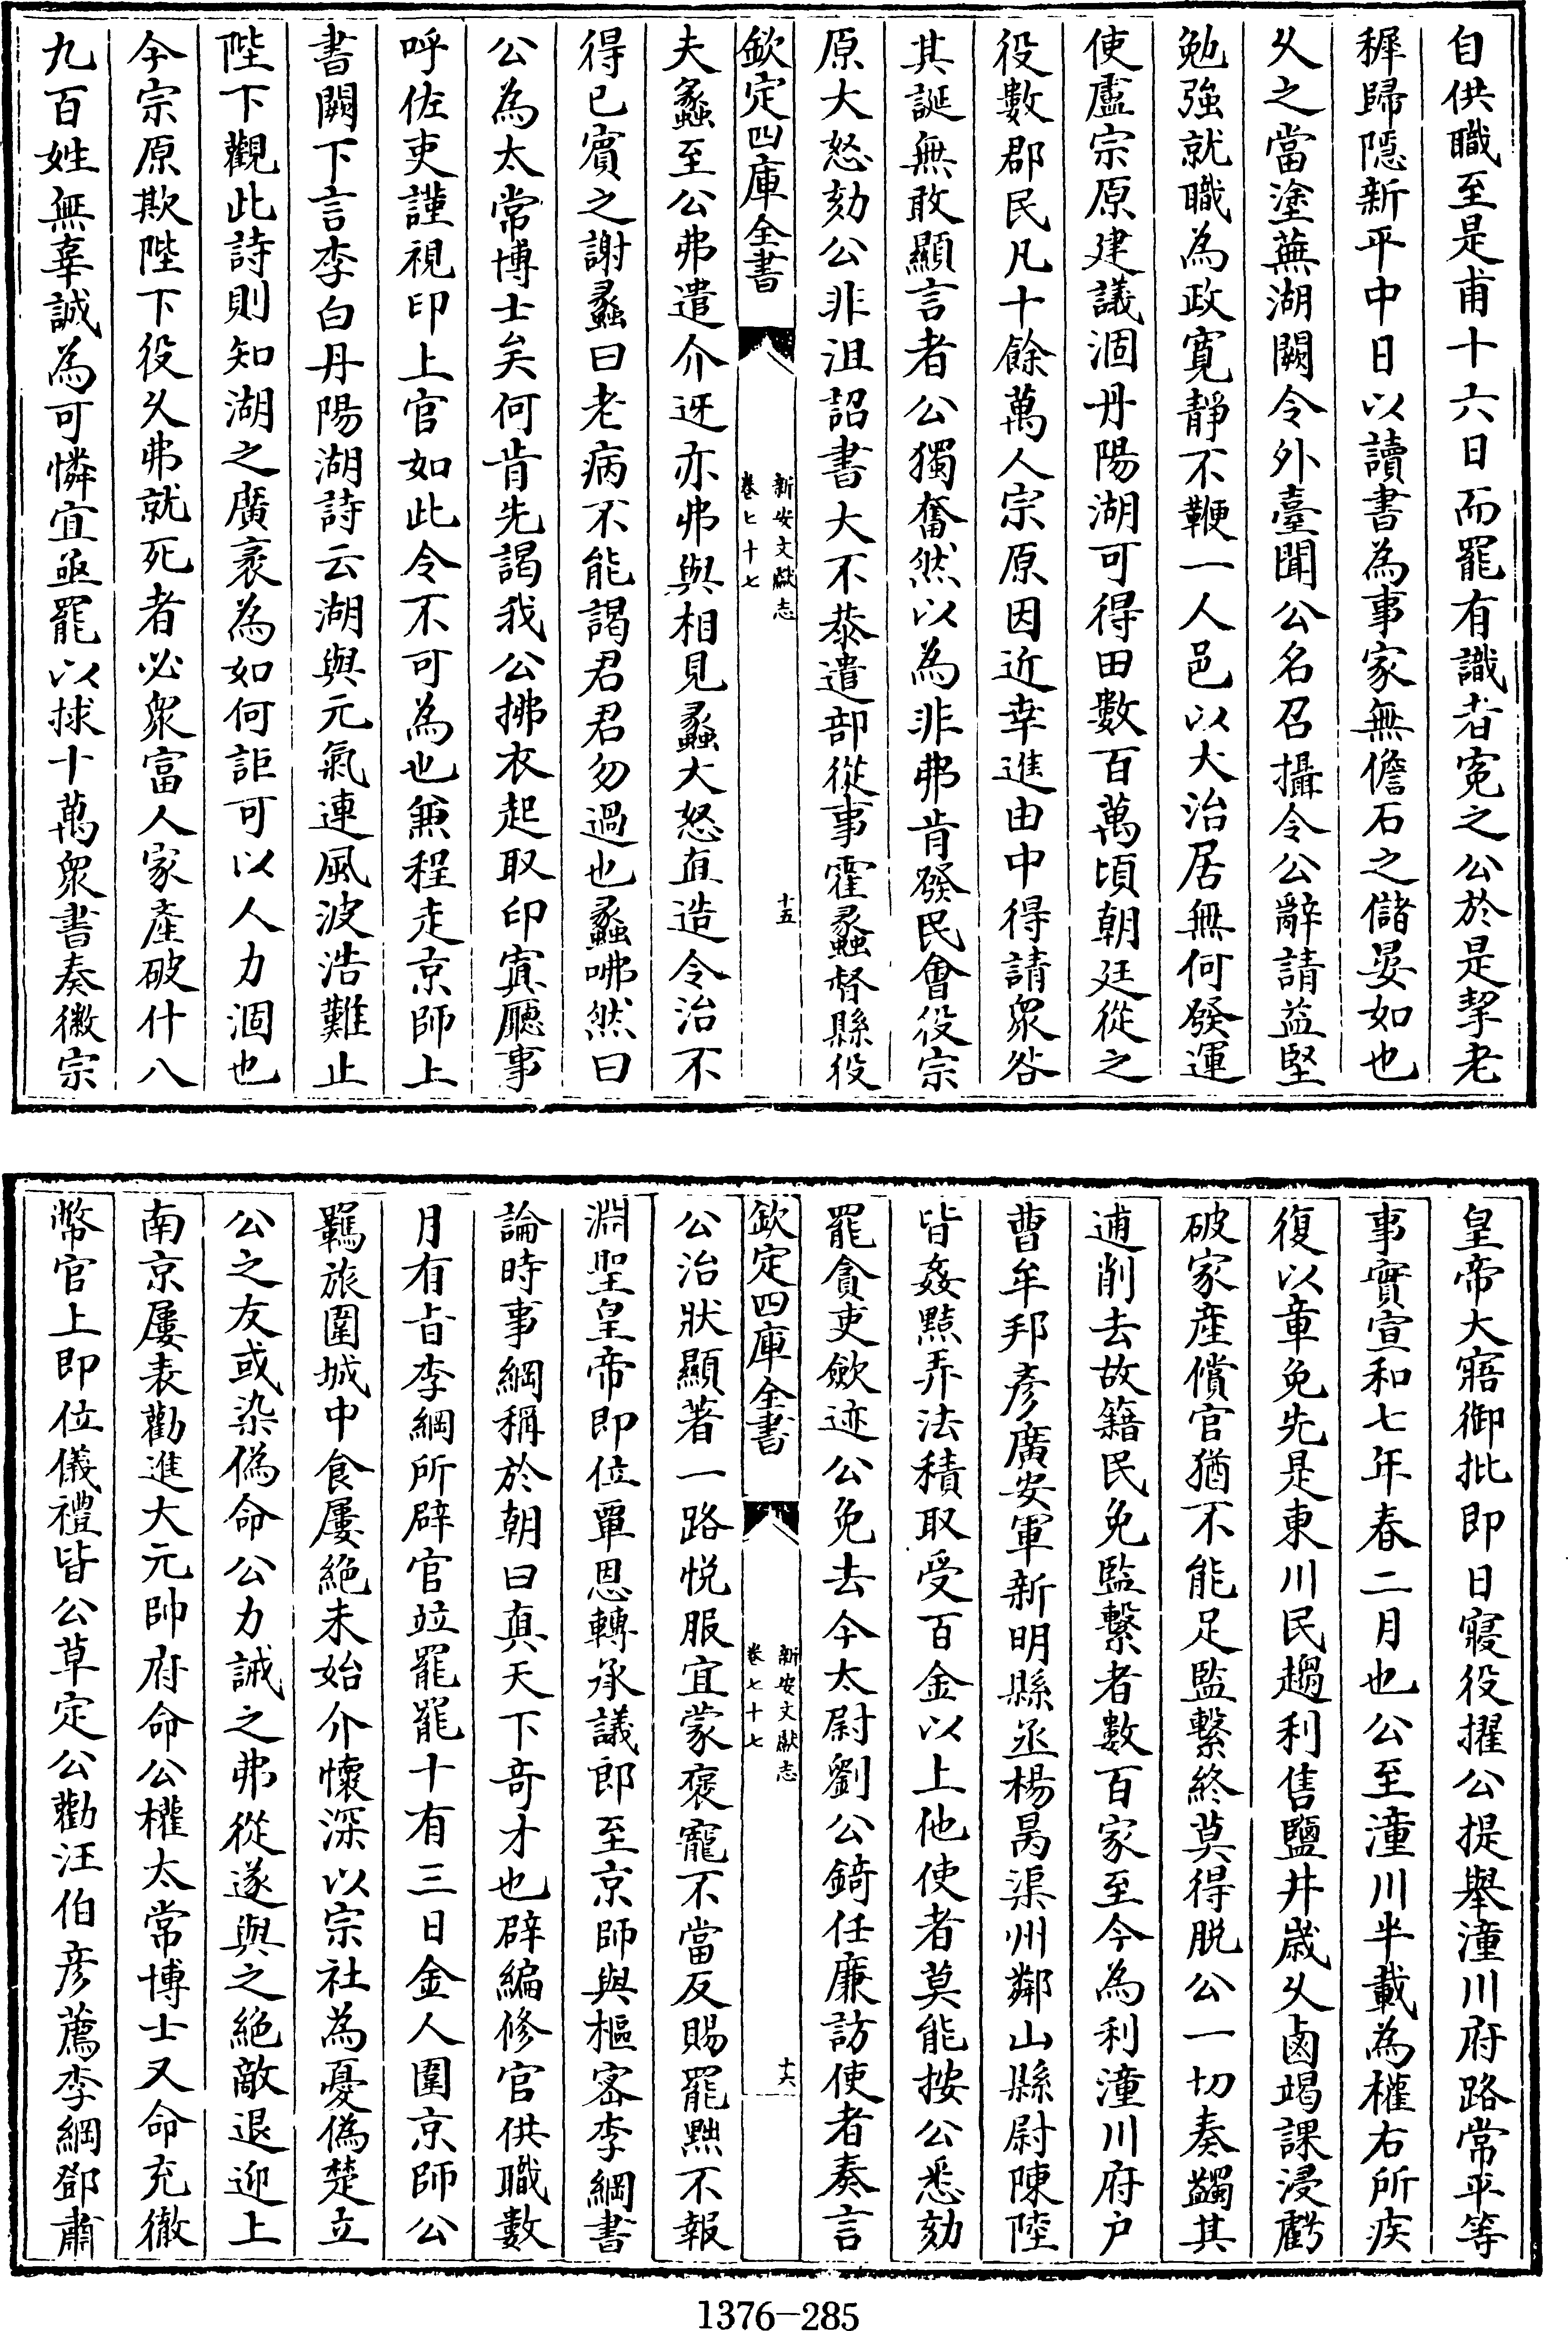 自供職至是甫十六日而罷有識者寃之公於是挈老
穉歸隱新平中日以讀書為事家無儋石之儲晏如也
乆之當塗蕪湖闕令外臺聞公名召攝令公辭請益堅
勉強就職為政寛静不鞭一人邑以大治居無何發運
使盧宗原建議涸丹陽湖可得田數百萬頃朝廷從之
役數郡民凡十餘萬人宗原因近幸進由中得請衆咎
其誕無敢顯言者公獨奮然以為非弗肯發民會役宗
原大怒劾公非沮詔書大不恭遣部從事霍蠡督縣役
欽定四庫全書
新安文獻志
卷七十七
十五
夫蠡至公弗遣介迓亦弗與相見蠡大怒直造令治不
得已賓之謝蠡曰老病不能謁君君勿過也蠡咈然曰
公為太常博士矣何肯先謁我公拂衣起取印寘廳事
呼佐吏謹視印上官如此令不可為也兼程走京師上
書闕下言李白丹陽湖詩云湖與元氣連風波浩難止
陛下觀此詩則知湖之廣袤為如何詎可以人力涸也
今宗原欺陛下役乆弗就死者必衆富人家產破什八
九百姓無辜誠為可憐宜亟罷以捄十萬衆書奏徽宗
皇帝大寤御批即日寢役擢公提舉潼川府路常平等
事實宣和七年春二月也公至潼川半載為權右所疾
復以章免先是東川民趨利售鹽井歲乆鹵竭課浸虧
破家產償官猶不能足監繫終莫得脱公一切奏蠲其
逋削去故籍民免監繫者數百家至今為利潼川府户
曹牟邦彥廣安軍新明縣丞楊昺渠州鄰山縣尉陳陸
皆姦點弄法積取受百金以上他使者莫能按公悉劾
罷貪吏歛迹公免去今太尉劉公錡任廉訪使者奏言
欽定四庫全書
新安文獻志
卷七十七
十六
公治狀顯著一路悦服宜蒙褒寵不當反賜罷黜不報
淵聖皇帝即位覃恩轉承議郎至京師與樞密李綱書
論時事綱稱於朝曰真天下竒才也辟編修官供職數
月有旨李綱所辟官竝罷罷十有三日金人圍京師公
羈旅圍城中食屢絶未始介懷深以宗社為憂偽楚立
公之友或染偽命公力誡之弗從遂與之絶敵退迎上
南京屢表勸進大元帥府命公權太常博士又命充徹
幣官上即位儀禮皆公草定公勸汪伯彥薦李綱鄧肅
1376-285